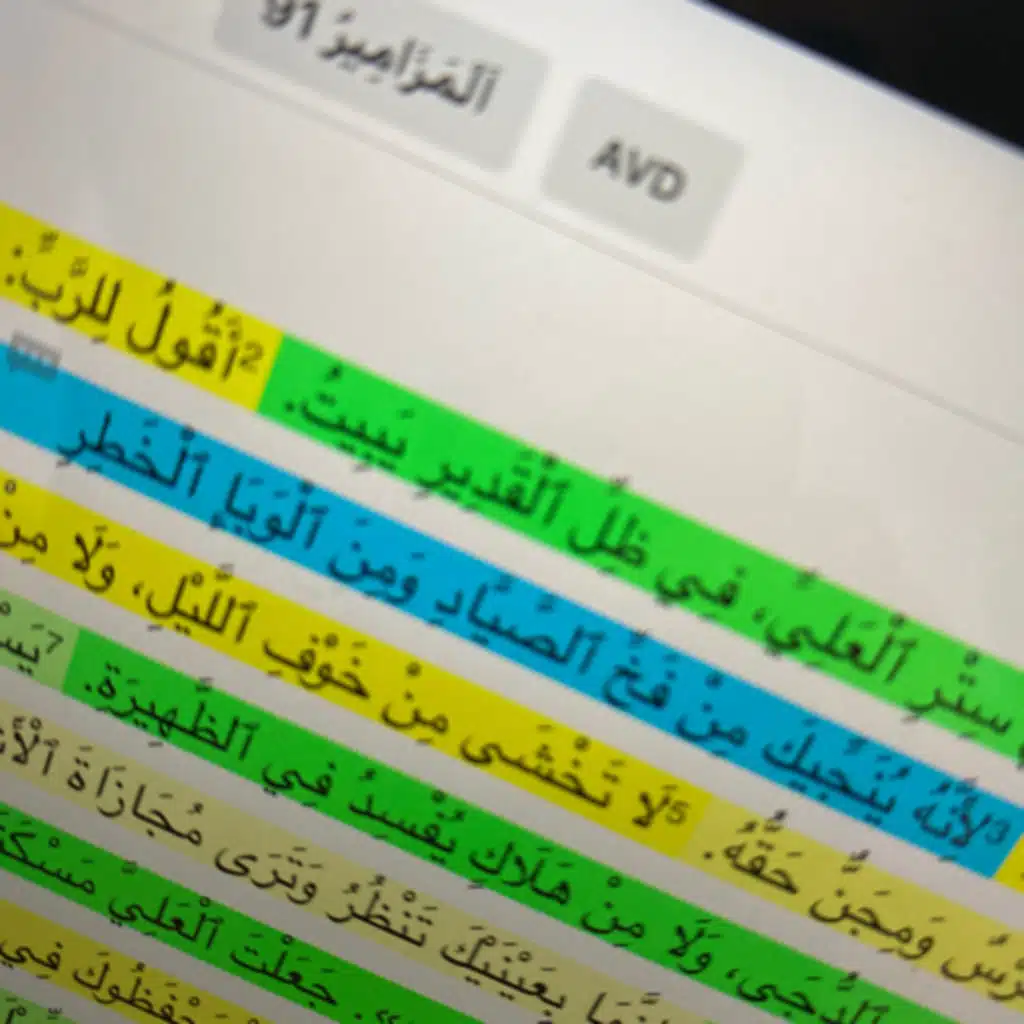 اَلْمَزَامِيرَ 91
AVD
سِتْرِ ٱلْعَلِيِّ، فِي ظِلِّ ٱلْقَدِيرِ يَبِيتُ. 2أَقُولُ لِلرَّبِّ:
3لِأَنَّهُ يُنَجِّيكَ مِنْ فَخِّ ٱلصَّيَّادِ وَمِنَ ٱلْوَبَإِ ٱلْخَطِرِ
وَمِجَنٌّ حَقُّهُ. 5لَا تَخْشَى مِنْ خَوْفِ ٱللَّيْلِ، وَلَا مِنْ
ٱلدُّجَى، وَلَا مِنْ هَلَاكٍ يُفْسِدُ فِي ٱلظَّهِيرَةِ. 7
بِعَيْنَيْكَ تَنْظُرُ وَتَرَى مُجَازَاةَ
جَعَلْتَ ٱلْعَلِيَّ
فِي